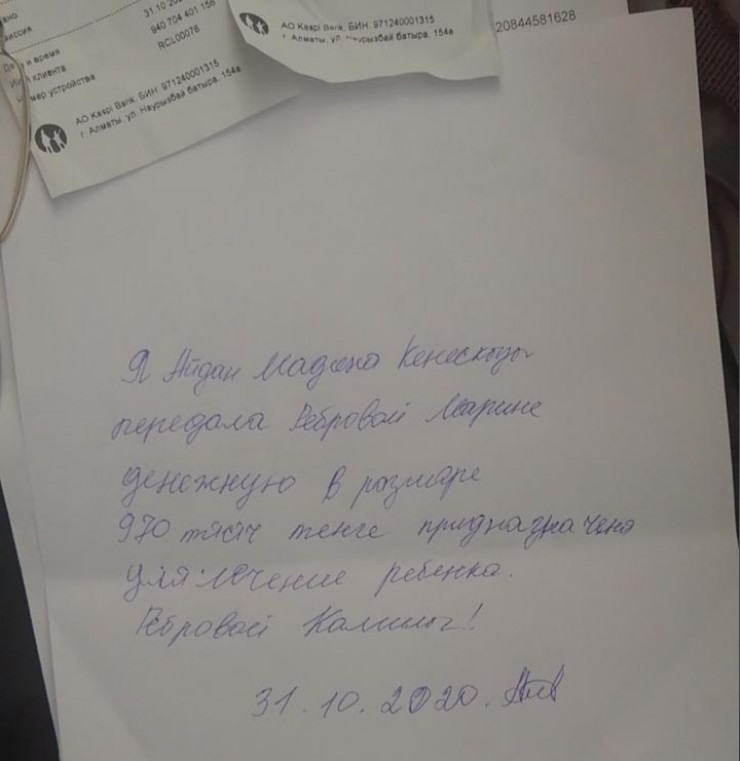 31.10.20
940 704 401 156
RCL00076
иссия
и время
клиента
мер устройства
АО Kaspi Bank, БИН 971240001315
г. Алматы, ул. Наурызбай батыра, 154а
АО Kaspi Bank, БИН 971240001315
г. Алматы, ул. Наурызбай батыра, 154а
20844581628
Я Айдан Мадина Кенескызы
передала Ребровой Марине
денежную в размере
970 тысяч тенге придназначено
для лечение ребенка.
Ребровой Камилы!
31.10.2020.